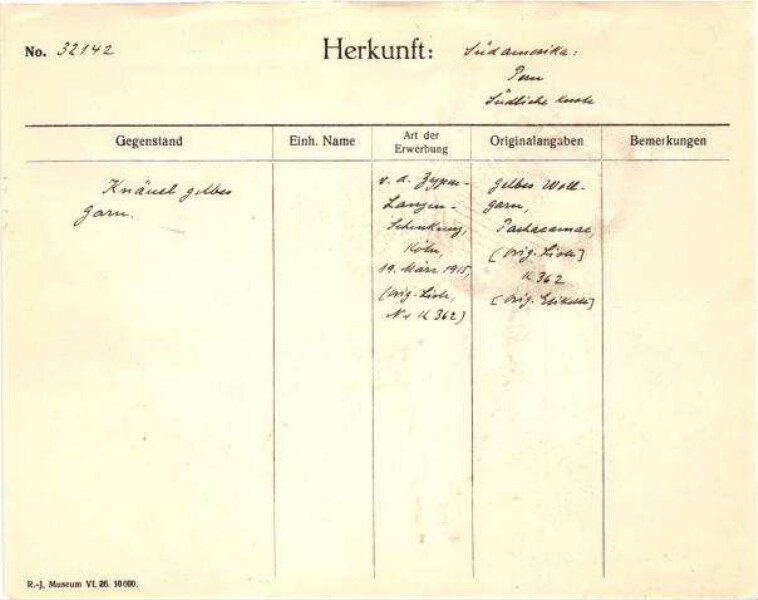 No. 32142
Herkunft: Südamerika:
Peru
Südliche Küste
Gegenstand
Einh. Name
Art der
Erwerbung
Originalangaben
Bemerkungen
Knäuel gelbes
Garn.
v. d. Zypen-
Langen-
Schenkung,
Köln,
19. März 1915,
(Orig.-Liste,
Nr K 362)
Gelbes Woll-
garn,
Pachacamac,
[Orig.-Liste]
K 362
[Orig. Etikette]
R.-J. Museum VI. 26. 10000.